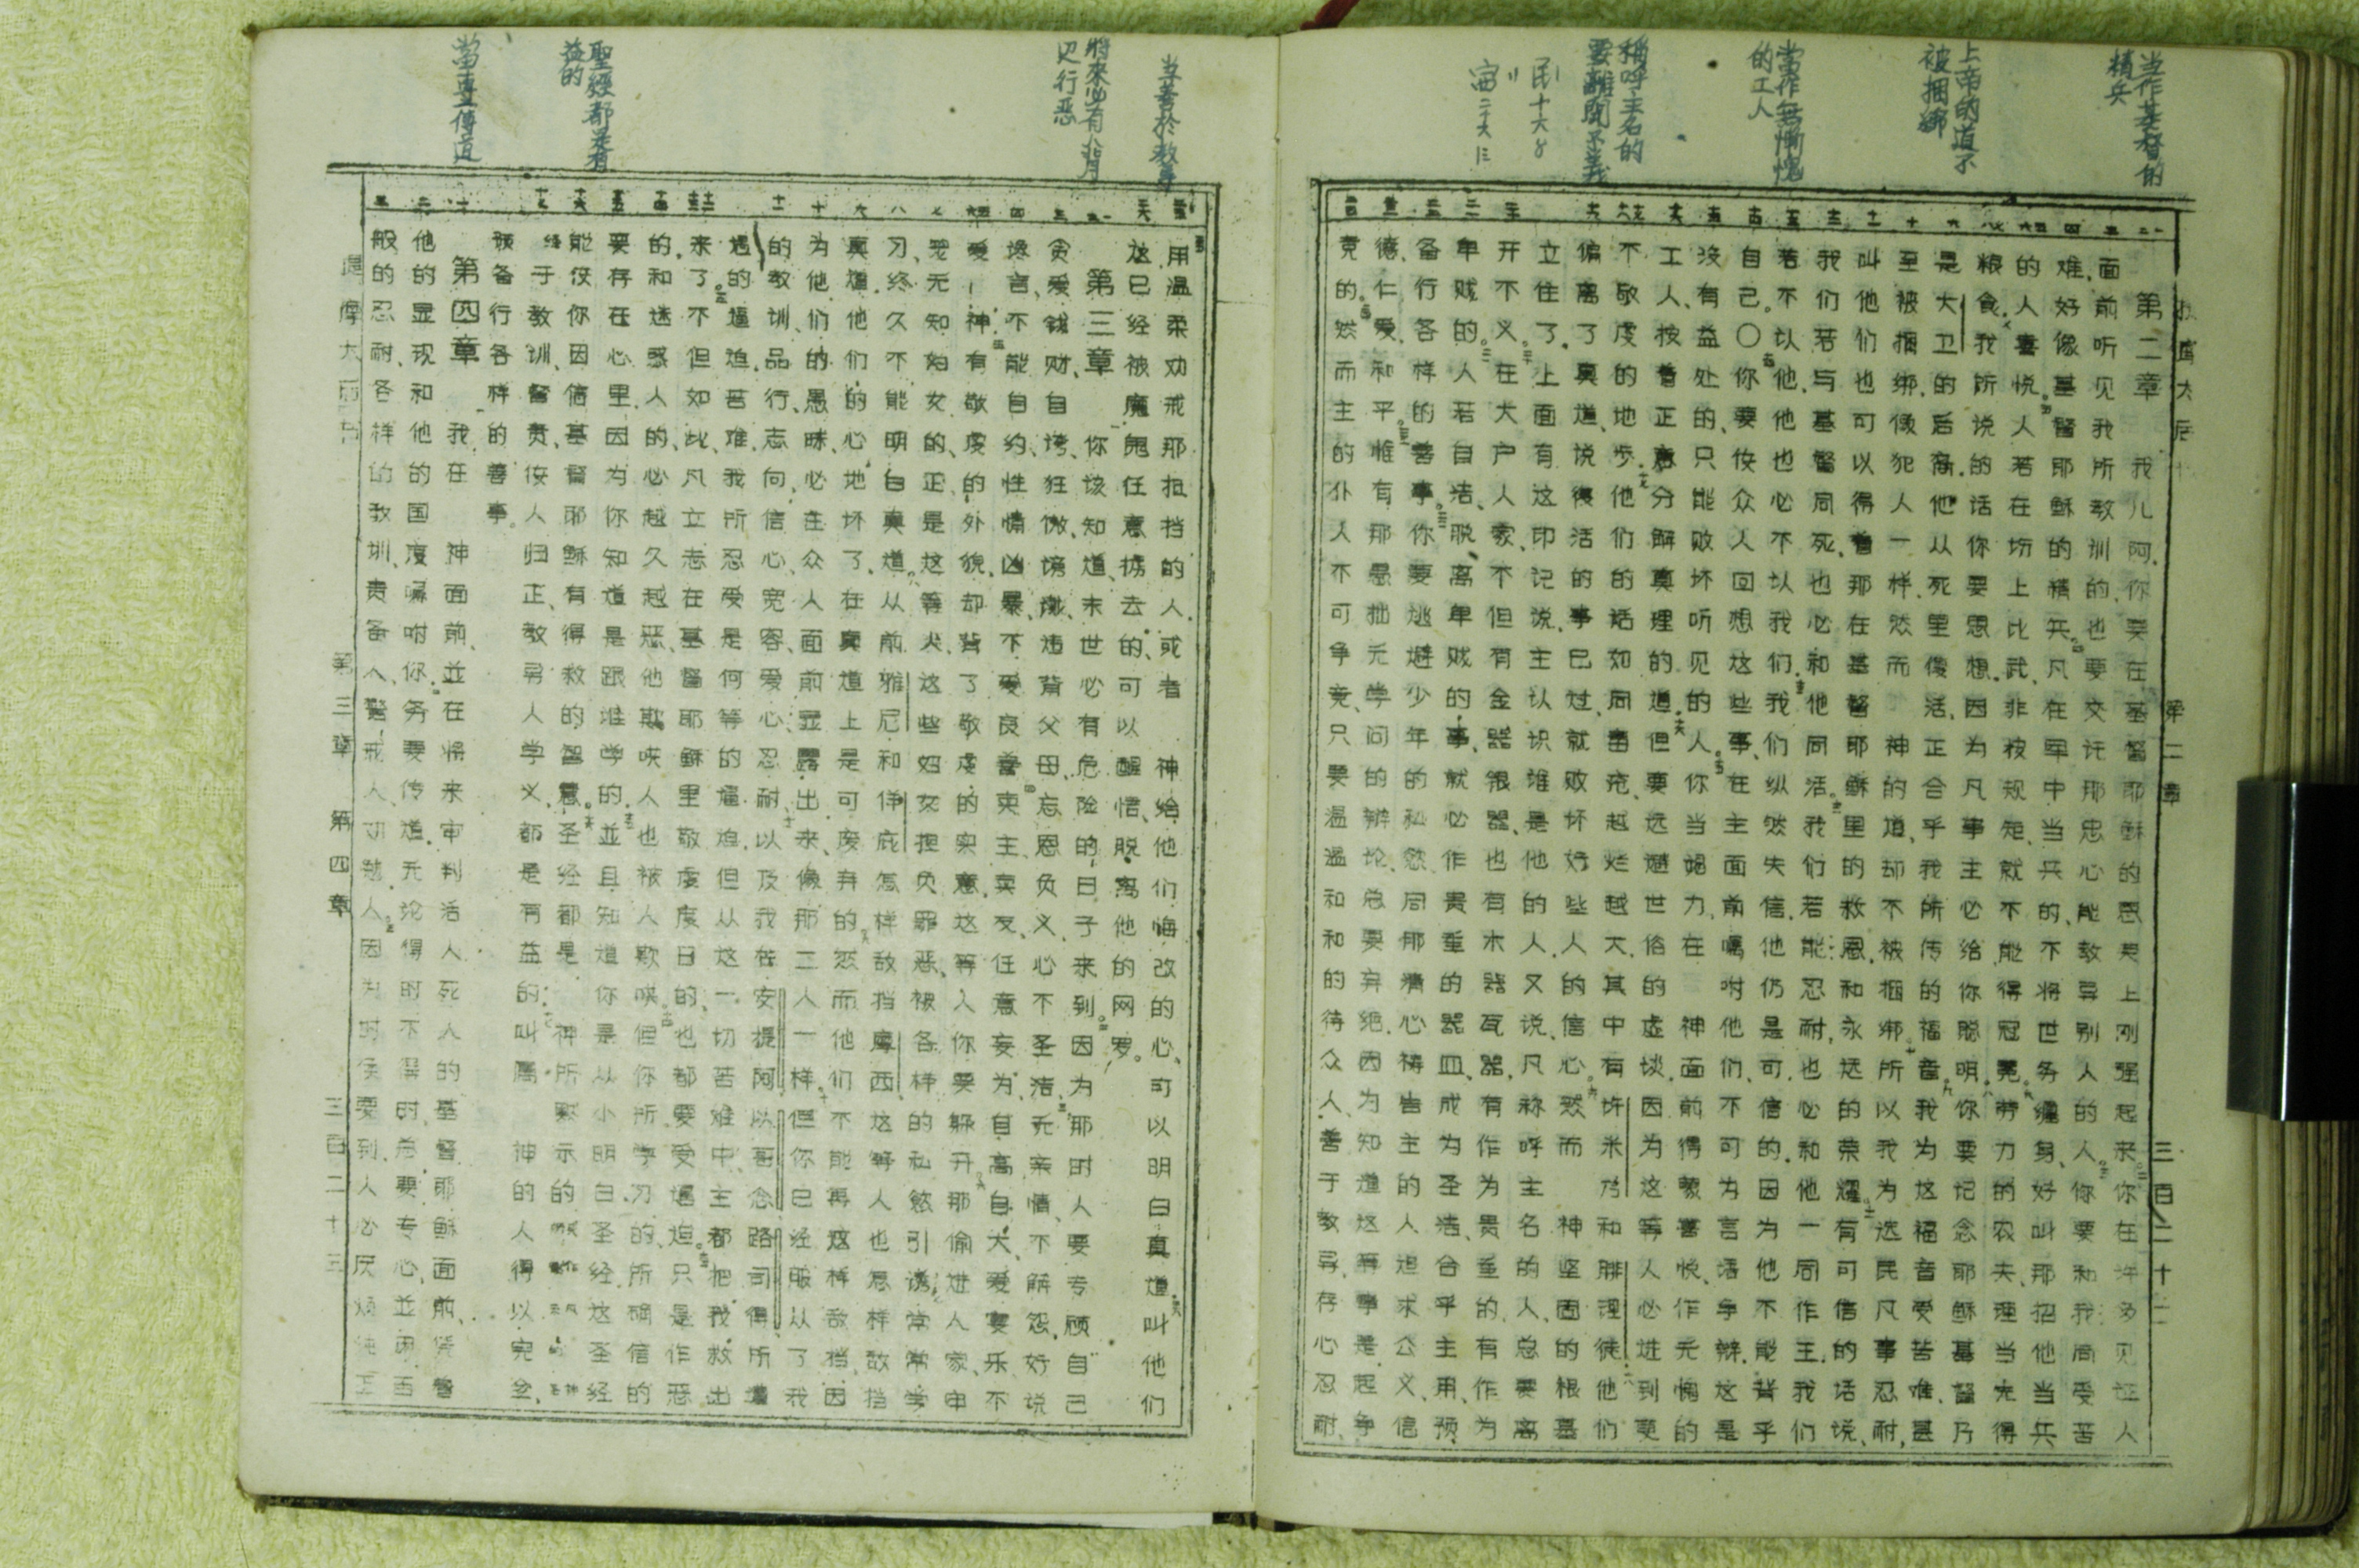 当作基督的精兵
上帝的道不被捆綁
當作無慚愧的工人
稱呼主名的要離開不義
民十六8
提摩太后书 第二章 三百二十二
第二章 我儿阿、你要在基督耶稣的恩典上刚强起来。你在许多见证人
面前听见我所教训的、也要交讬那忠心能教导别人的人。你要和我同受苦
难、好像基督耶稣的精兵。凡在军中当兵的、不将世务缠身、好叫那招他当兵
的人喜悦。人若在场上比武、非按规矩、就不能得冠冕。劳力的农夫、理当先得
粮食。我所说的话你要思想、因为凡事主必给你聪明。你要记念耶稣基督乃
是大卫的后裔.他从死里复活、正合乎我所传的福音。我为这福音受苦难、甚
至被捆绑、像犯人一样.然而 神的道、却不被捆绑。所以我为选民凡事忍耐、
叫他们也可以得着那在基督耶稣里的救恩、和永远的荣耀。有可信的话说、
我们若与基督同死、也必和他同活。我们若能忍耐、也必和他一同作王.我们
若不认他、他也必不认我们.我们纵然失信、他仍是可信的.因为他不能背乎
自己。〇你要使众人回想这些事、在主面前嘱咐他们、不可为言语争辩、这是
没有益处的、只能败坏听见的人。你当竭力、在 神面前得蒙喜悦、作无愧的
工人、按着正意分解真理的道。但要远避世俗的虚谈.因为这等人必进到更
不敬虔的地步。他们的话如同毒疮、越烂越大.其中有许米乃和腓理徒.他们
偏离了真道、说复活的事已过、就败坏好些人的信心。然而 神坚固的根基
立住了.上面有这印记说、主认识谁是他的人.又说、凡称呼主名的人、总要离
开不义。在大户人家、不但有金器银器、也有木器瓦器.有作为贵重的、有作为
卑贱的。人若自洁、脱离卑贱的事、就必作贵重的器皿、成为圣洁、合乎主用、预
备行各样的善事。你要逃避少年的私慾、同那清心祷告主的人追求公义、信
德、仁爱、和平。惟有那愚拙无学问的辩论、总要弃绝、因为知道这等事是起争
竞的。然而主的仆人不可争竞、只要温温和和的待众人、善于教导、存心忍耐、
当善於教导
將來必有人背逆行恶
聖經都是有益的
當專傳道
用温柔劝戒那抵挡的人.或者 神给他们悔改的心、可以明白真道.叫他们
这已经被魔鬼任意掳去的、可以醒悟、脱离他的网罗。
第三章 你该知道、末世必有危险的日子来到。因为那时人要专顾自己、
贪爱钱财、自夸、狂傲、谤讟、违背父母、忘恩负义、心不圣洁、无亲情、不解怨、好说
谗言、不能自约、性情凶暴、不爱良善、卖主卖友、任意妄为、自高自大、爱宴乐不
爱 神.有敬虔的外貌、却背了敬虔的实意.这等人你要躲开。那偷进人家、牢
笼无知妇女的、正是这等人.这些妇女担负罪恶、被各样的私慾引诱、常常学
习、终久不能明白真道。从前雅尼和佯庇怎样敌挡摩西、这等人也怎样敌挡
真道.他们的心地坏了.在真道上是可废弃的。然而他们不能再这样敌挡.因
为他们的愚昧、必在众人面前显露出来、像那二人一样。但你已经服从了我
的教训、品行、志向、信心、宽容、爱心、忍耐、以及我在安提阿、以哥念、路司得、所遭
遇的逼迫、苦难.我所忍受是何等的逼迫.但从这一切苦难中、主都把我救出
来了。不但如此、凡立志在基督耶稣里敬虔度日的、也都要受逼迫。只是作恶
的、和迷惑人的、必越久越恶、他欺哄人、也被人欺哄。但你所学习的、所确信的
要存在心里.因为你知道是跟谁学的.並且知道你是从小明白圣经.这圣经
能使你因信基督耶稣有得救的智慧。圣经都是 神所默示的
于教训、督责、使人归正、教导人学义、都是有益的.叫属 神的人得以完全、
预备行各样的善事。
第四章 我在 神面前、並在将来审判活人死人的基督耶稣面前、凭着
他的显现和他的国度嘱咐你.务要传道.无论得时不得时、总要专心、並用百
般的忍耐、各样的教训、责备人、警戒人、劝勉人。因为时候要到、人必厌烦纯正
提摩太后书 第三章 第四章 三百二十三